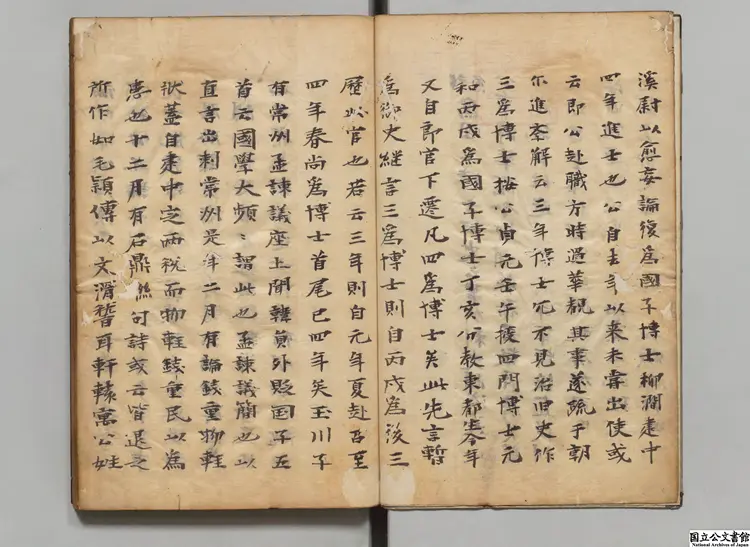 溪尉以愈妄論復為國子博士柳澗建中
四年進士也公自去年以来未嘗出使或
云即公赴職方時過華覩其事遂疏于朝
尓進斈解云三年博士冗不見治旧史作
三為博士按公貞元壬午授四門博士元
和丙戌為國子博士丁亥分教東都至今年
又自郎官下遷凡四為博士矣此先言暫
為御史継言三為博士則自丙戌為後三
歷此官也若云三年則自元年夏赴召至
四年春尚為博士首尾已四年矣玉川子
有常州孟諫議座上聞韓員外貶国子五
首云國學大頻〻謂此也孟諫議簡也以
直言出刺常州是年二月有論錢重物軽
状蓋自建中定両税而物軽錢重民以為
患也十二月有石鼎聯句詩或云皆退之
所作如毛穎傳以文滑稽耳軒轅寓公姓
国立公文書館
National Archives of Japan